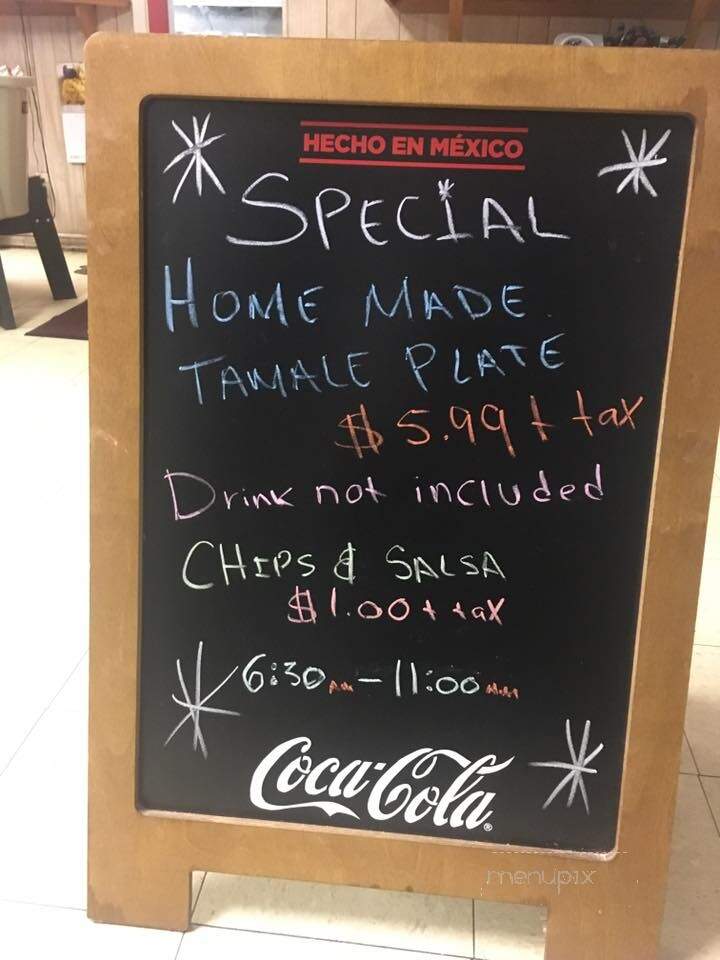 HECHO EN MÉXICO
SPECIAL
HOME MADE
TAMALE PLATE
$5.99 + tax
Drink not included
CHIPS & SALSA
$1.00 + tax
6:30 AM - 11:00 AM
Coca-Cola®
menupix